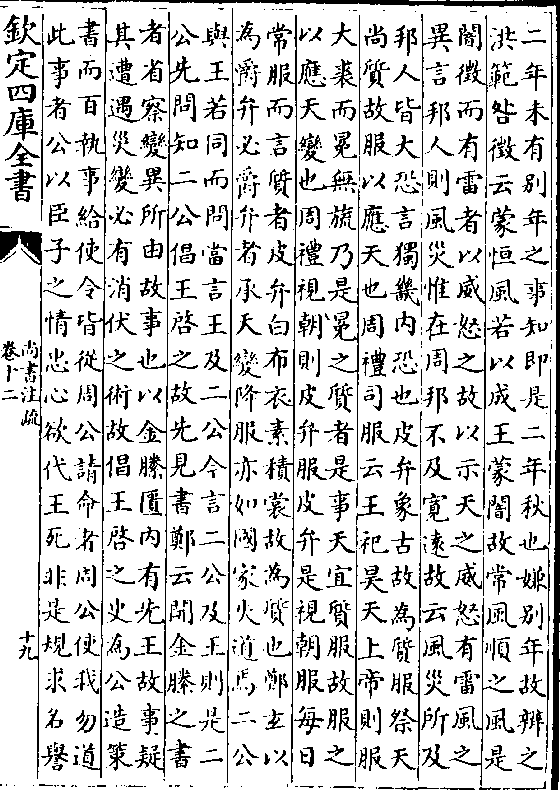 二年未有别年之事知即是二年秋也嫌别年故辨之
洪範咎徵云蒙恒風若以成王蒙闇故常風順之風是
闇徵而有雷者以威怒之故以示天之威怒有雷風之
異言邦人則風災惟在周邦不及寛逺故云風災所及
邦人皆大恐言獨畿内恐也皮弁象古故為質服祭天
尚質故服以應天也周禮司服云王祀昊天上帝則服
大裘而冕無旒乃是冕之質者是事天宜質服故服之
以應天變也周禮視朝則皮弁服皮弁是視朝服每日
常服而言質者皮弁白布衣素積裳故為質也鄭玄以
為爵弁必爵弁者承天變降服亦如國家火道焉二公
與王若同而問當言王及二公今言二公及王則是二
公先問知二公倡王啓之故先見書鄭云開金縢之書
者省察變異所由故事也以金縢匱内有先王故事疑
其遭遇災變必有消伏之術故倡王啓之史為公造策
書而百執事給使令皆從周公請命者周公使我勿道
此事者公以臣子之情忠心欲代王死非是規求名譽
欽定四庫全書
尚書注疏
卷十二
十九